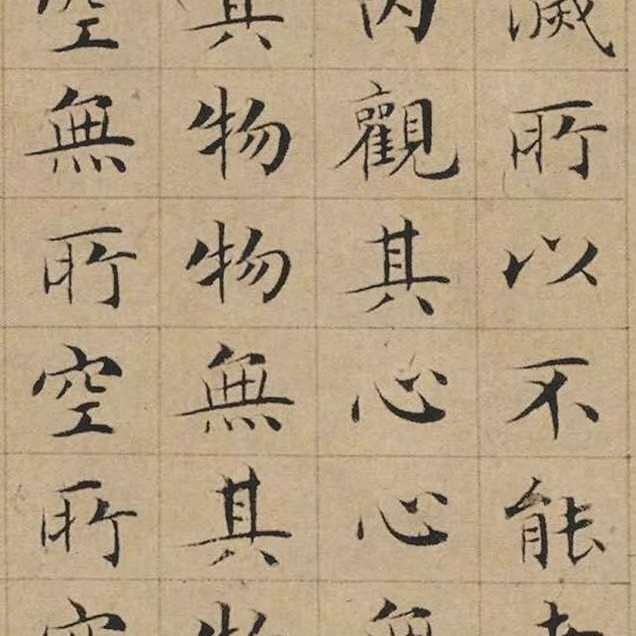 滅所以不能
內觀其心心無
其物物無其物
空無所空所空